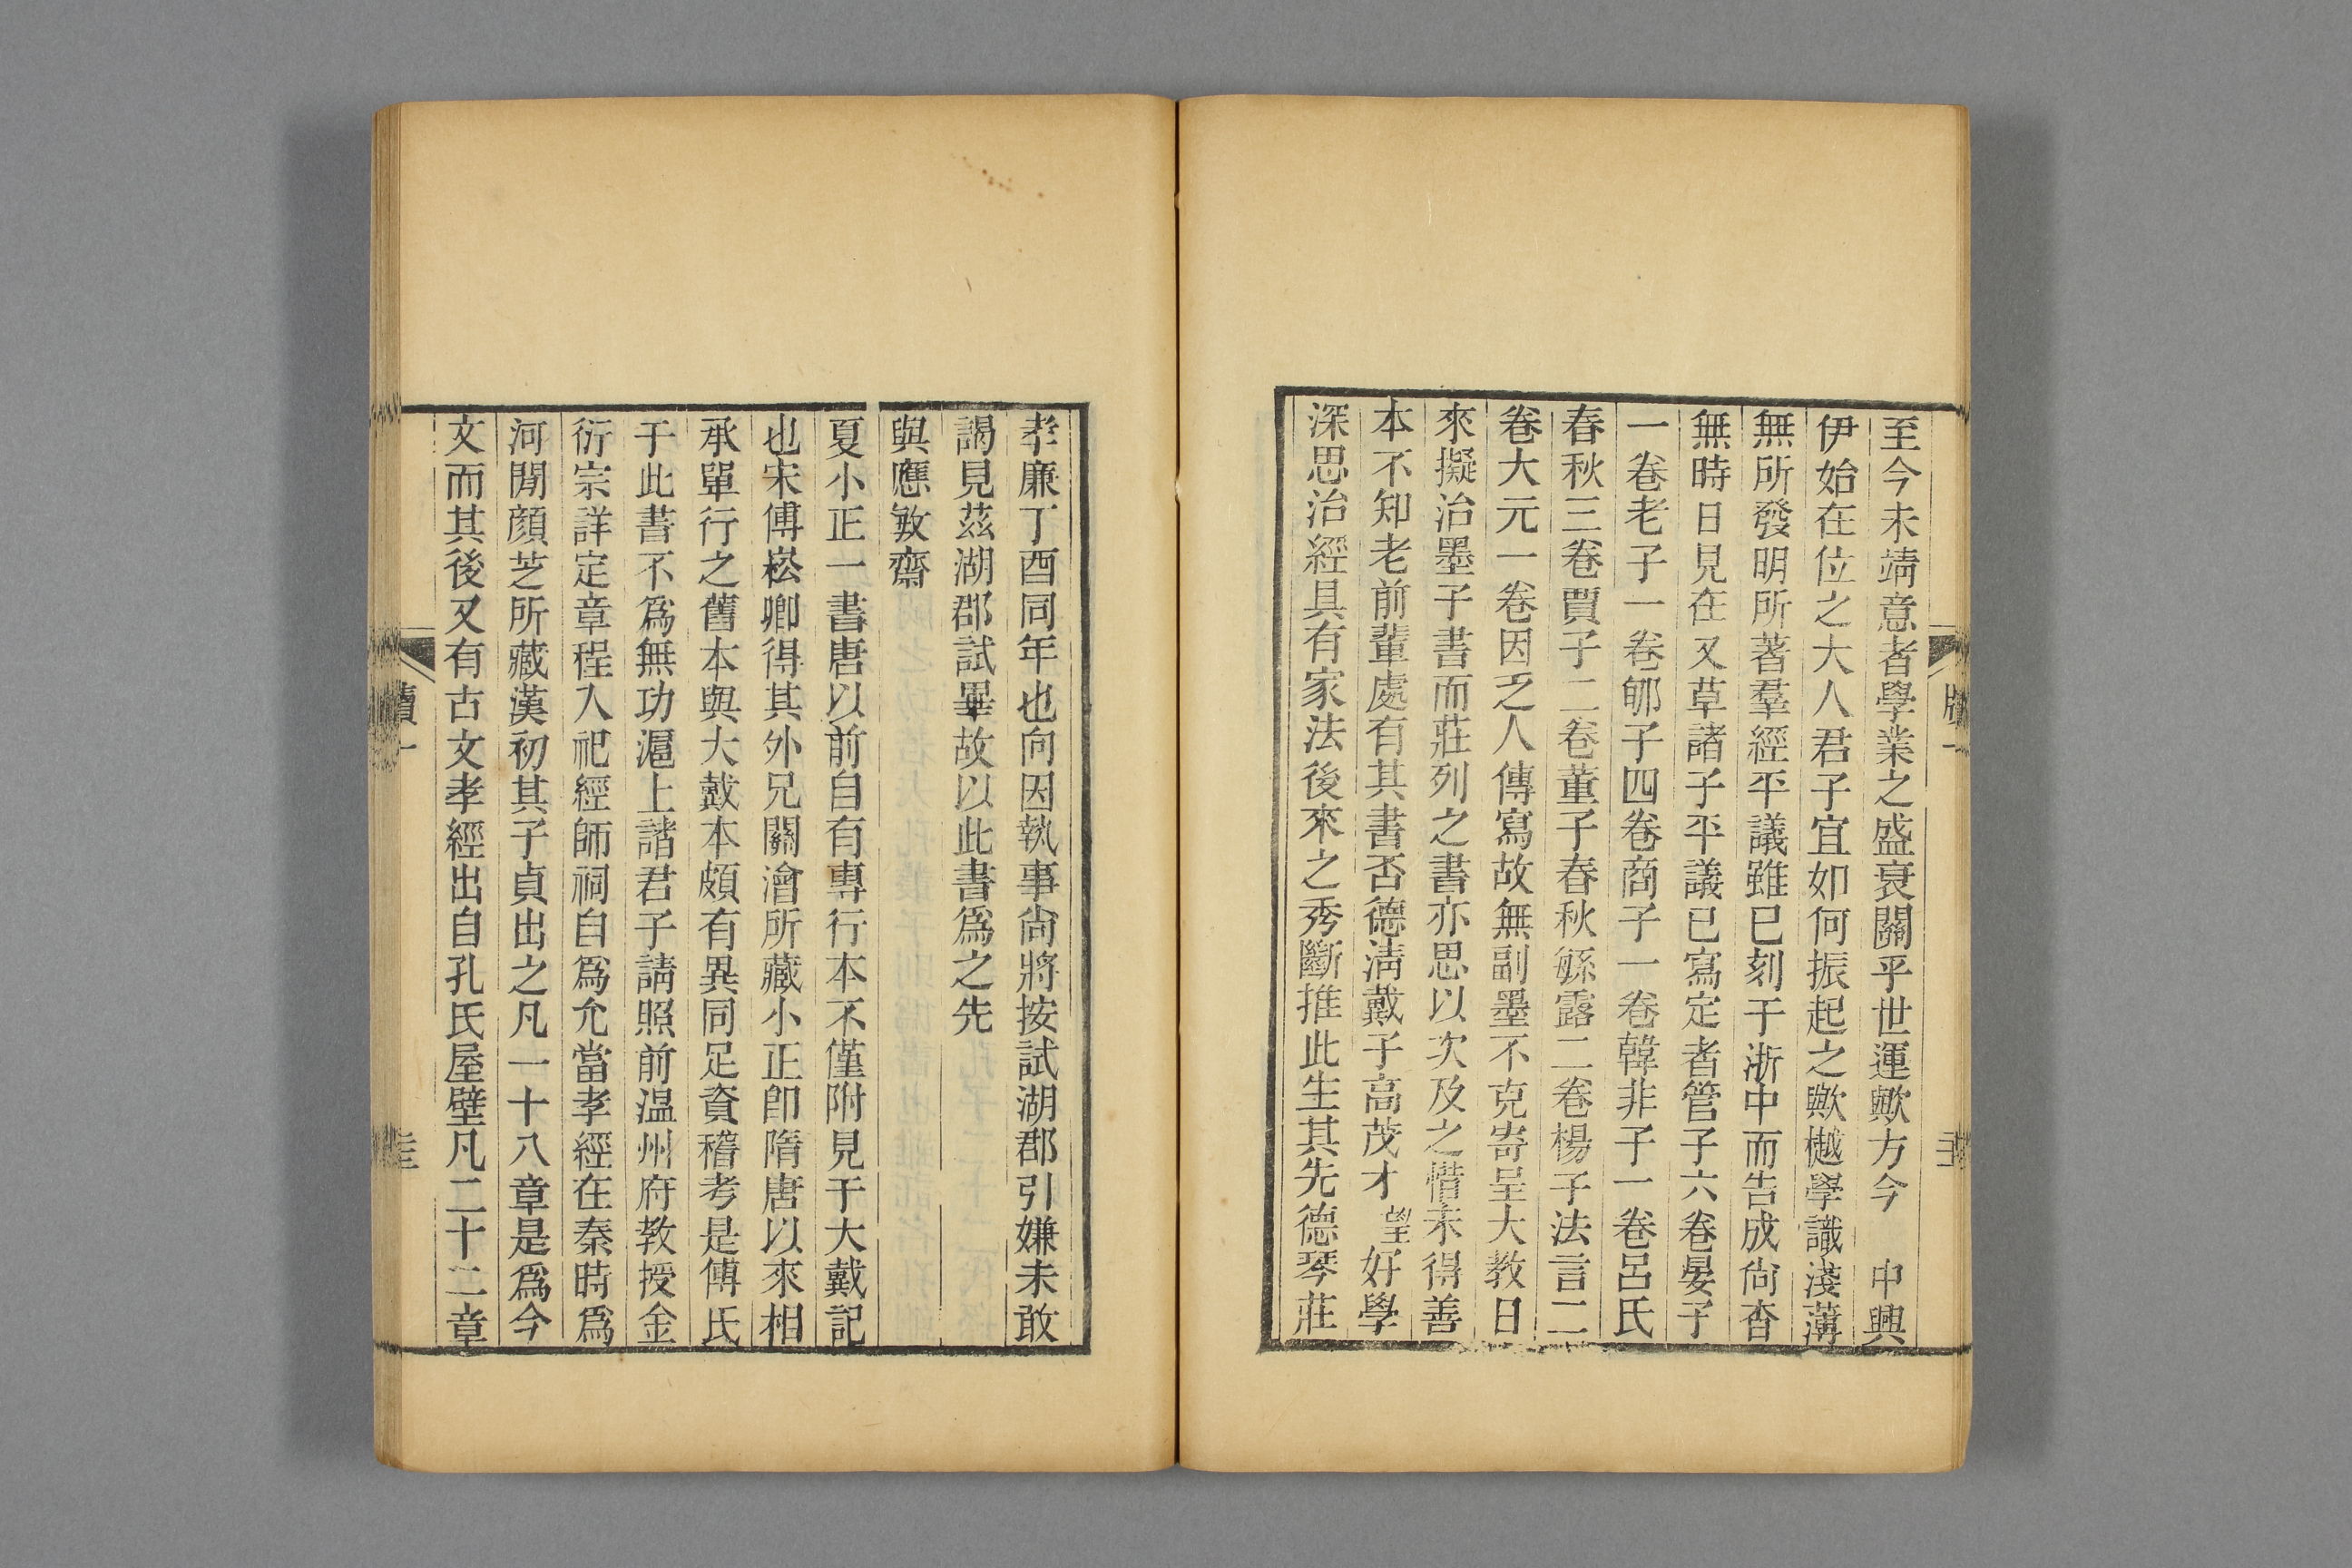 至今未靖意者學業之盛衰關乎世運歟方今　中興
伊始在位之大人君子宜如何振起之歟樾學識淺薄
無所發明所著羣經平議雖已刻于浙中而告成尙杳
無時日見在又草諸子平議已寫定者管子六卷晏子
一卷老子一卷郇子四卷商子一卷韓非子一卷呂氏
春秋三卷賈子二卷董子春秋緐露二卷楊子法言二
卷大元一卷因乏人傳寫故無副墨不克寄呈大教日
來擬治墨子書而莊列之書亦思以次及之惜未得善
本不知老前輩處有其書否德淸戴子高茂才望好學
深思治經具有家法後來之秀斷推此生其先德琴莊
孝廉丁酉同年也向因執事尙將按試湖郡引嫌未敢
謁見茲湖郡試畢故以此書爲之先
與應敏齋
夏小正一書唐以前自有專行本不僅附見于大戴記
也宋傅崧卿得其外兄關澮所藏小正卽隋唐以來相
承單行之舊本與大戴本頗有異同足資稽考是傅氏
于此書不爲無功滬上諸君子請照前温州府教授金
衍宗詳定章程入祀經師祠自爲允當孝經在秦時爲
河閒顔芝所藏漢初其子貞出之凡一十八章是爲今
文而其後又有古文孝經出自孔氏屋壁凡二十二章